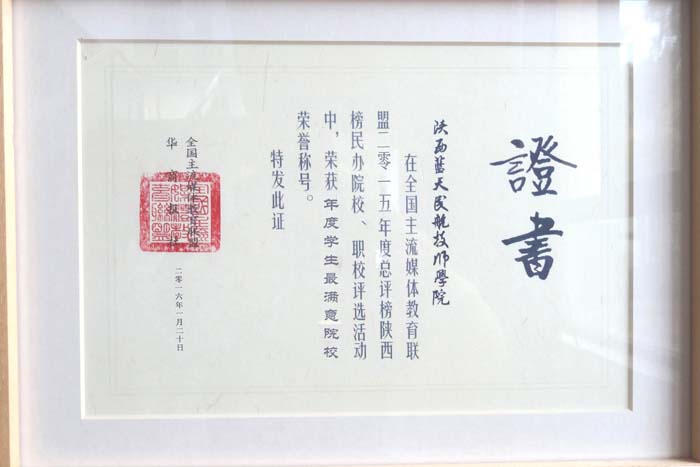 證書
陕西蓝天民航技师學院
在全国主流媒体教育联
盟二零一五年度总评榜陕西
榜民办院校、职校评选活动
中，荣获年度学生最满意院校
荣誉称号。
特发此证
全国主流媒体教育联盟
华商报社
二零一六年一月二十日